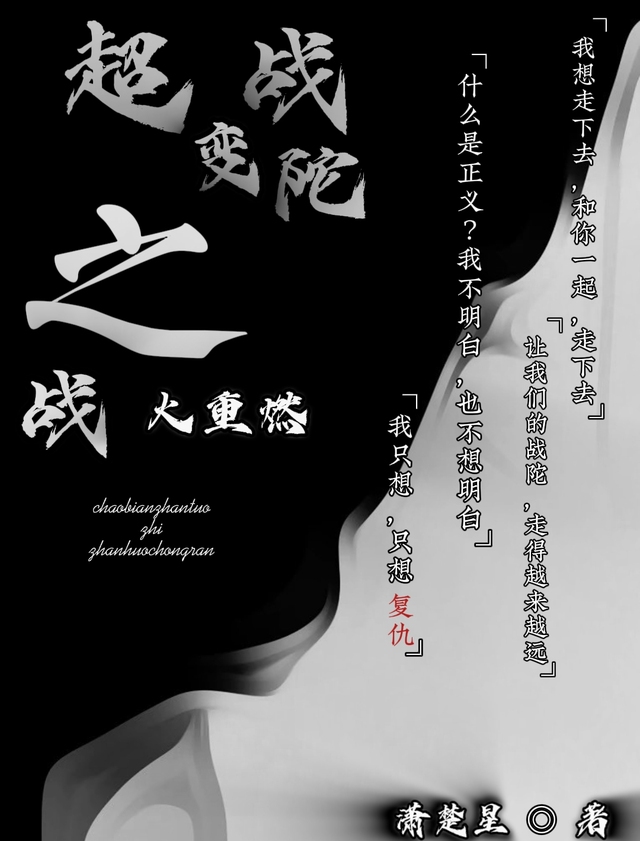 超变战陀
之
战火重燃
chaobianzhantuo
zhi
zhanhuochongran
「我想走下去,和你一起,走下去」
「让我们的战陀,走得越来越远」
「什么是正义?我不明白,也不想明白」
「我只想,只想复仇」
潇楚星◎著